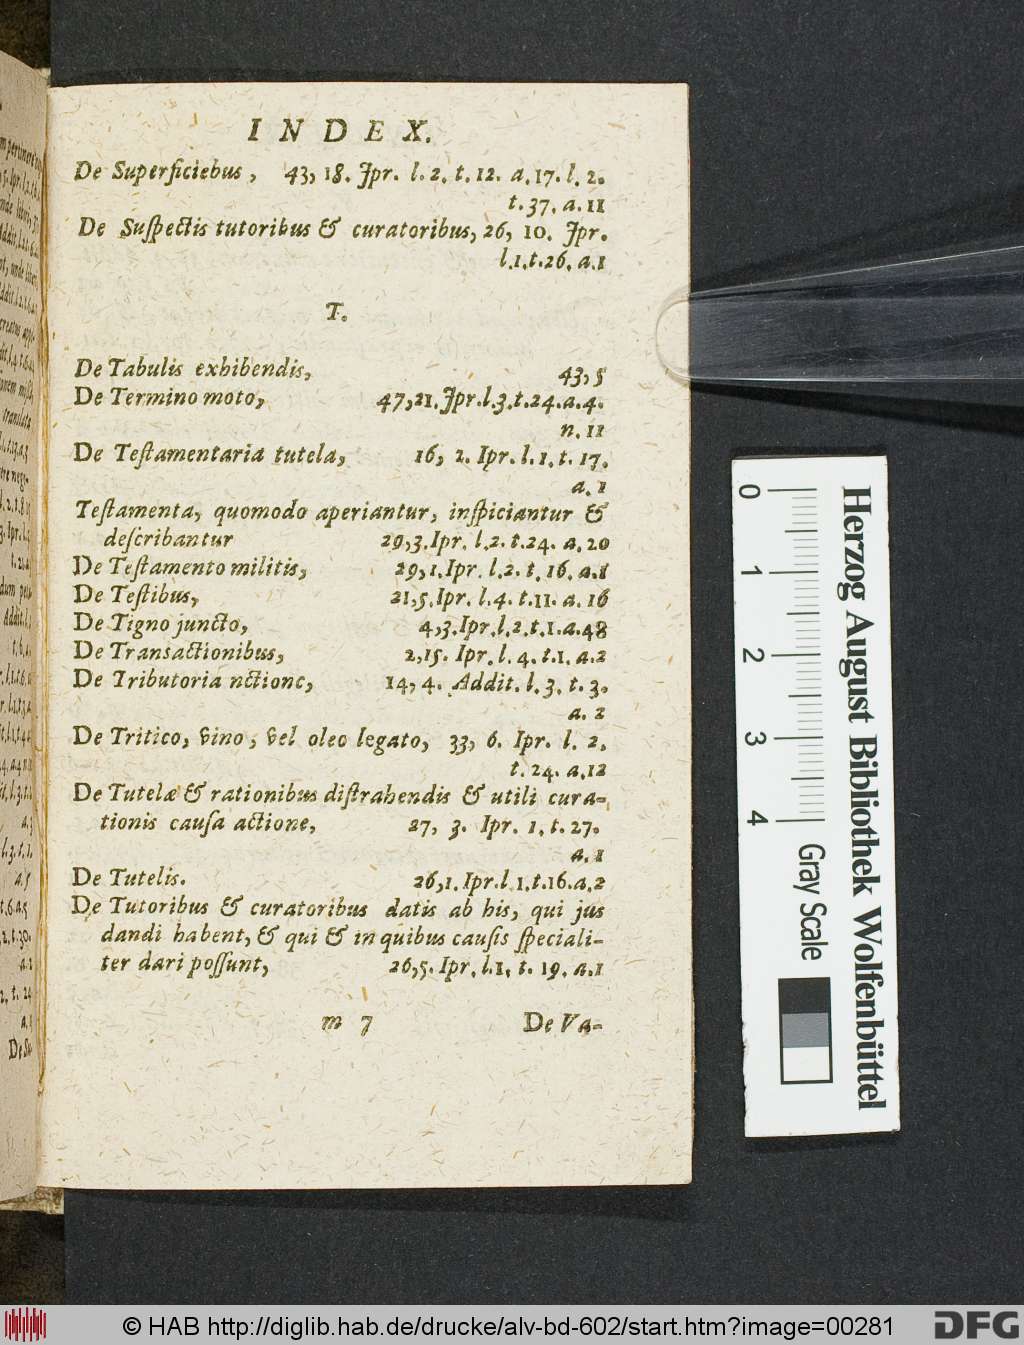 INDEX.
De Superficiebus, 43, 18. Jpr. l. 2. t. 12. a. 17. l. 2.
t. 37. a. 11
De Suſpectis tutoribus & curatoribus, 26, 10. Jpr.
l. 1. t. 26. a. 1
T.
De Tabulis exhibendis, 43, 5
De Termino moto, 47, 21. Jpr. l. 3. t. 24. a. 4.
n. 11
De Teſtamentaria tutela, 16, 2. Ipr. l. 1. t. 17.
a. 1
Teſtamenta, quomodo aperiantur, inſpiciantur &
deſcribantur 29, 3. Ipr. l. 2. t. 24. a. 20
De Teſtamento militis, 29, 1. Ipr. l. 2. t. 16. a. 1
De Teſtibus, 21, 5. Ipr. l. 4. t. 11. a. 16
De Tigno juncto, 4, 3. Ipr. l. 2. t. 1. a. 48
De Transactionibus, 2, 15. Ipr. l. 4. t. 1. a. 2
De Tributoria nctione, 14, 4. Addit. l. 3. t. 3.
a. 2
De Tritico, vino, vel oleo legato, 33, 6. Ipr. l. 2.
t. 24. a. 12
De Tutelæ & rationibus diſtrahendis & utili cura-
tionis cauſa actione, 27, 3. Ipr. 1. t. 27.
a. 1
De Tutelis. 26, 1. Ipr. l 1. t. 16. a. 2
De Tutoribus & curatoribus datis ab his, qui jus
dandi habent, & qui & in quibus cauſis ſpeciali-
ter dari poſſunt, 26, 5. Ipr. l. 1. t. 19. a. 1
m 7 De Va-
0 1 2 3 4 Gray Scale
Herzog August Bibliothek Wolfenbüttel
© HAB http://diglib.hab.de/drucke/alv-bd-602/start.htm?image=00281
DFG